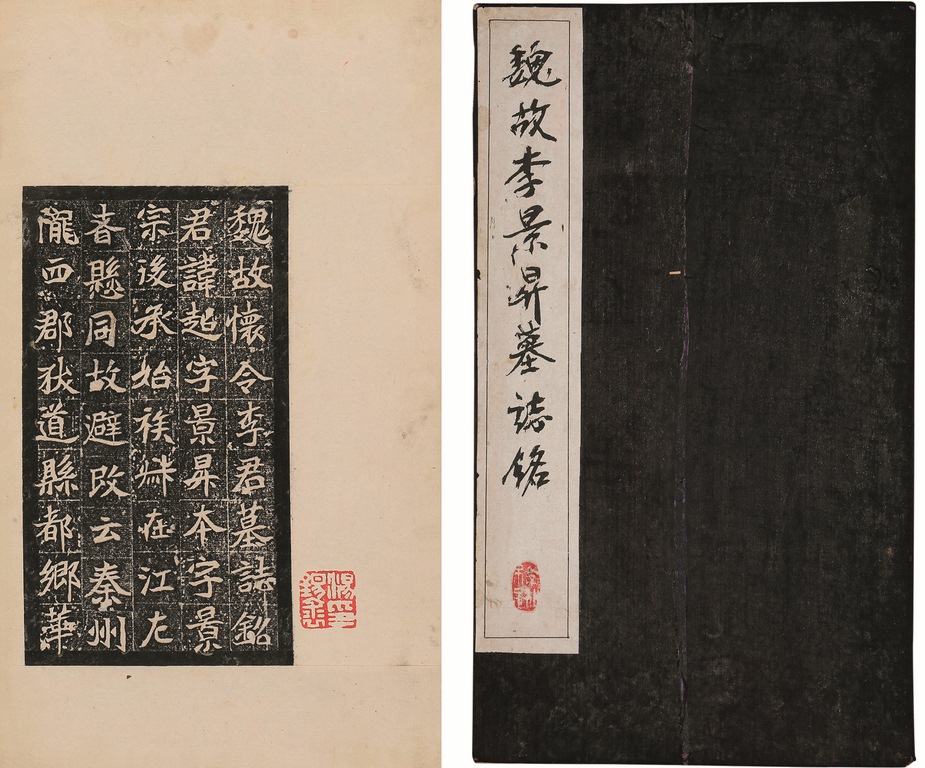 魏故李景昇墓誌銘
魏故懷令李君墓誌銘
君諱超字景昇本字景
宗後承始族叔在江左
者懸同故避改云秦州
隴西郡狄道縣都鄉華